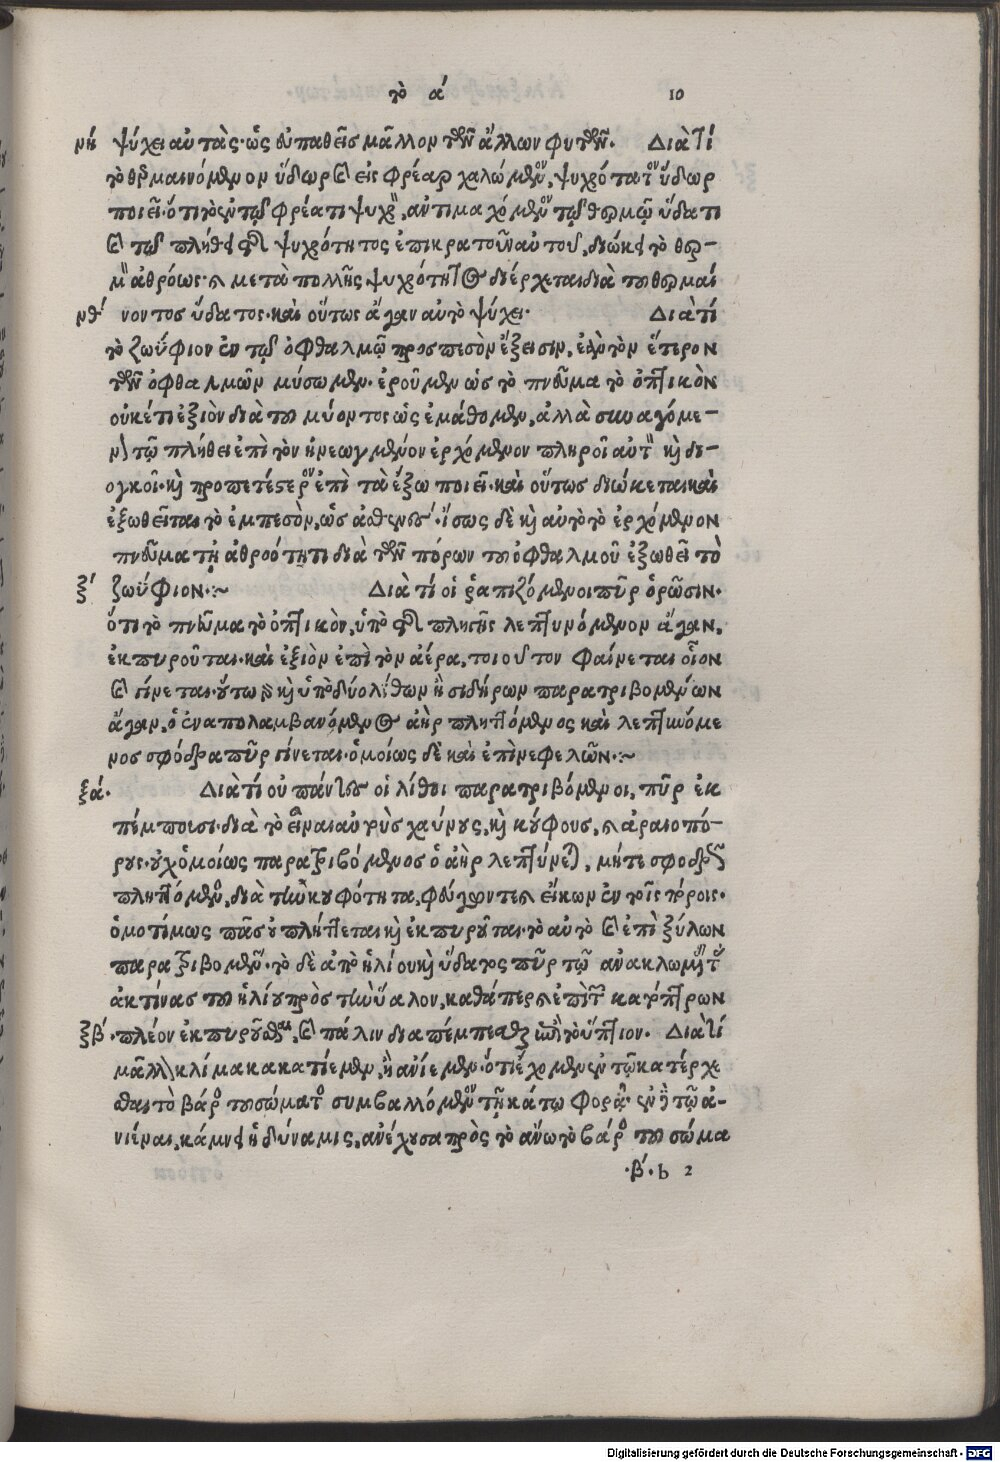 τὸ α´ 10
νή ψύχει αὐτὰς· ὡς εὐπαθεῖς μᾶλλον τῶν ἄλλων φυτῶν. Διατί
τὸ θερμαινόμενον ὕδωρ καὶ εἰς φρέαρ χαλώμενον, ψυχρότατον ὕδωρ
ποιεῖ· ὅτι τὸ ἐν τῷ φρέατι ψυχρὸν, ἀντιμαχόμενον τῷ θερμῷ ὕδατι
καὶ τῷ πλήθει τῆς ψυχρότητος ἐπικρατοῦν αὐτοῦ, διώκει τὸ θερ-
μὸν ἀθρόως· καὶ μετὰ πολλῆς ψυχρότητος διέρχεται διὰ τοῦ θερμαί
νθ´ νοντος ὕδατος· καὶ οὕτως ἄγαν αὐτὸ ψύχει. Διατί
τὸ ζωΰφιον ἐν τῷ ὀφθαλμῷ προσπεσὸν ἔξεισιν, ἐὰν τὸν ἕτερον
τῶν ὀφθαλμῶν μύσωμεν. ἐροῦμεν ὡς τὸ πνεῦμα τὸ ὀπτικὸν
οὐκέτι ἐξιὸν διὰ τοῦ μύοντος ὡς ἐμάθομεν, ἀλλὰ συναγόμε-
νον τῷ πλήθει ἐπὶ τὸν ἠνεωγμένον ἐρχόμενον πληροῖ αὐτὸν καὶ δι-
ογκοῖ· καὶ προπετέστερον ἐπὶ τὰ ἔξω ποιεῖ· καὶ οὕτως διώκεται καὶ
ἐξωθεῖται τὸ ἐμπεσὸν, ὡς ἀσθενές. ἴσως δὲ καὶ αὐτὸ τὸ ἐρχόμενον
πνεῦμα τῇ ἀθροότητι διὰ τῶν πόρων τοῦ ὀφθαλμοῦ ἐξωθεῖ τὸ
ξ´ ζωΰφιον·:~ Διατί οἱ ῥαπιζόμενοι πῦρ ὁρῶσιν.
ὅτι τὸ πνεῦμα τὸ ὀπτικὸν, ὑπὸ τῆς πληγῆς λεπτυνόμενον ἄγαν,
ἐκπυροῦται· καὶ ἐξιὸν ἐπὶ τὸν ἀέρα, τοιοῦτον φαίνεται οἷον
καὶ γίνεται· οὕτω δὲ καὶ ὑπὸ δύο λίθων ἢ σιδήρων παρατριβομένων
ἄγαν, ὁ ἐναπολαμβανόμενος ἀὴρ πληττόμενος καὶ λεπτυνόμε
νος σφόδρα πῦρ γίνεται· ὁμοίως δὲ καὶ ἐπὶ νεφελῶν·:~
ξά. Διατί οὐ πάντες οἱ λίθοι παρατριβόμενοι, πῦρ ἐκ
πέμπουσι· διὰ τὸ εἶναι αὐτοὺς χαύνους, καὶ κούφους, καὶ ἀραιοπό-
ρους· οὐχ ὁμοίως παρατριβόμενος ὁ ἀὴρ λεπτύνεται, μήτε σφοδρῶς
πληττόμενος, διὰ τὴν κουφότητα, φεύγοντες εἴκων ἐν τοῖς πόροις.
ὁμοτίμως πᾶς οὐ πλήττεται καὶ ἐκπυροῦται· τὸ αὐτὸ καὶ ἐπὶ ξύλων
παρατριβομένων· τὸ δὲ ἀπὸ ἡλίου καὶ ὕδατος πῦρ τῷ ἀνακλωμένην τὴν
ἀκτίνας τοῦ ἡλίου πρὸς τὴν ὕαλον, καθάπερ καὶ ἐπὶ τῶν κατόπτρων
ξβ´. πλέον ἐκπυροῦσθαι, καὶ πάλιν διαπέμπεσθαι ἐπὶ τὸ ὕπτιον. Διατί
μᾶλλον κλίμακα κατίεμεν, ἢ ἀνίεμεν· ὅτι ἔχομεν ἐν τῷ κατέρχε
σθαι τὸ βάρος τοῦ σώματος συμβαλλόμενον τῇ κάτω φορᾷ· ἐν δὲ τῷ ἀ-
νιέναι, κάμνει ἡ δύναμις, ἀνέχουσα πρὸς τὸ ἄνω τὸ βάρος τοῦ σώμα
.β´. b 2
Digitalisierung gefördert durch die Deutsche Forschungsgemeinschaft - DFG